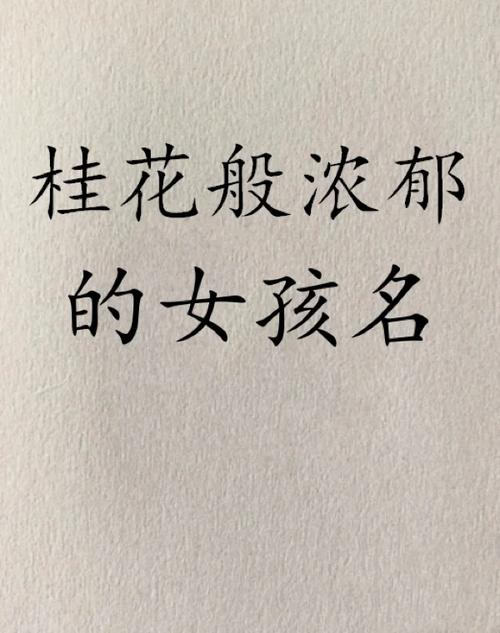 桂花般浓郁
的女孩名